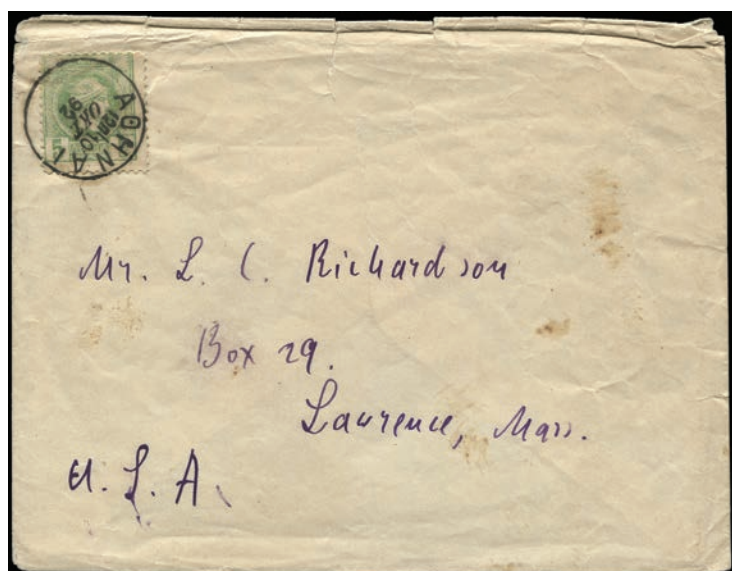 ΑΘΗΝΑΙ
ΟΚΤ
92
5
Mr. L. C. Richardson
Box 29.
Lawrence, Mass.
U. S. A.